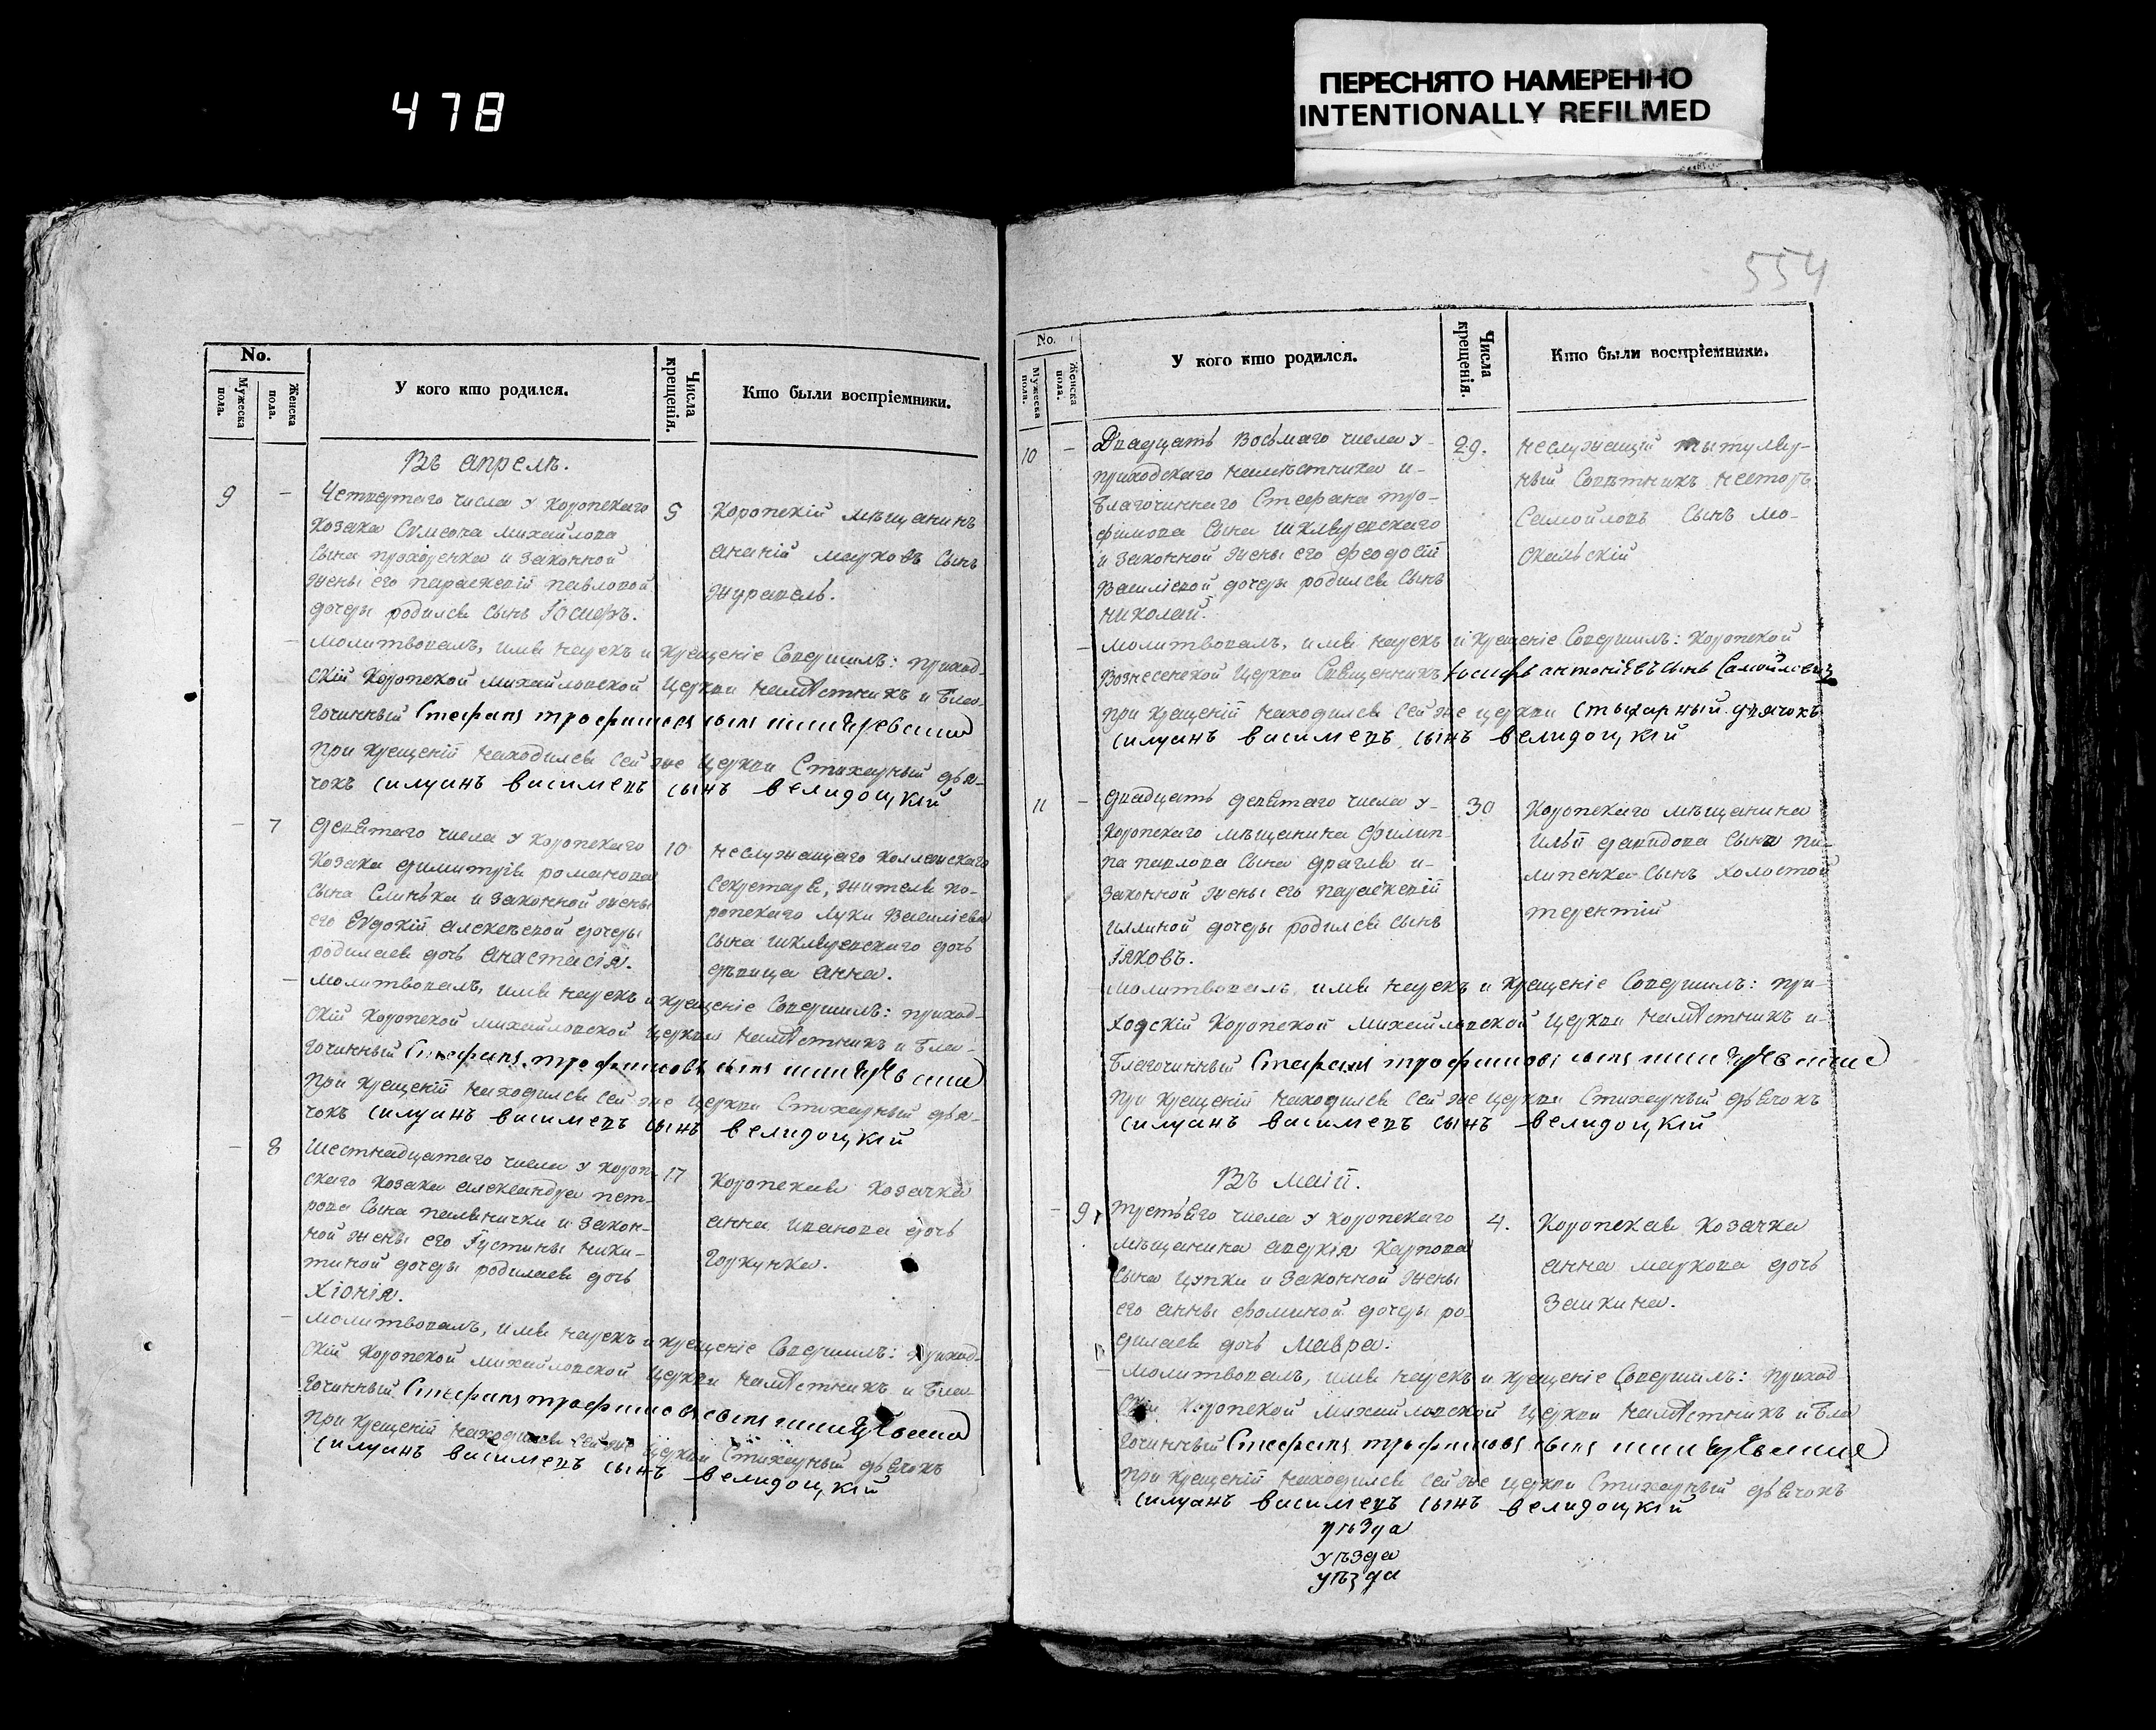 478
ПЕРЕСНЯТО НАМЕРЕННО
INTENTIONALLY REFILMED
No.
Мужеска пола.
Женска пола.
У кого кто родился.
Числа крещенія.
Кто были воспріемники.
Въ апрелѣ.
9 – Четвертаго числа у коропскаго
козака Сѵмеона михайлова
сына прохоренка и законной
жены его параскевій павловой
дочеры родился сынъ Іосифъ.
5
Коропскій мѣщанинъ
ананій марковъ сынъ
журавель.
– молитвовалъ, имя нарекъ и крещеніе совершилъ: приход-
скій Коропской михайловской церкви намѣстникъ и бла-
гочинный Стефанъ трофимовъ сынъ
при крещеніи находился сей же церкви Стихарный дья-
чокъ силуанъ василіевъ сынъ велидоцкій
– 7 девятаго числа у коропскаго
козака димитрія романова
сына Слинька и законной жены
его Еѵдокій алексѣевой дочеры
родилася дочь анастасія.
10
неслужащаго коллежскаго
секретаря, жителя ко-
ропскаго луки василіева
сына шкляревскаго дочь
дѣвица анна.
– молитвовалъ, имя нарекъ и крещеніе совершилъ: приход-
скій Коропской михайловской церкви намѣстникъ и бла-
гочинный Стефанъ трофимовъ сынъ
при крещеніи находился сей же церкви Стихарный дья-
чокъ силуанъ василіевъ сынъ велидоцкій
– 8 Шестнадцатаго числа у короп-
скаго козака александра пет-
рова сына пальнички и закон-
ной жены его Іустины ники-
тиной дочеры родилася дочь
Хіонія.
17
Коропская козачка
анна иванова дочь
горкунка.
– молитвовалъ, имя нарекъ и крещеніе совершилъ: приход-
скій Коропской михайловской церкви намѣстникъ и бла-
гочинный Стефанъ трофимовъ сынъ
при крещеніи находился сей же церкви Стихарный дьячокъ
силуанъ василіевъ сынъ велидоцкій
554
No.
Мужеска пола.
Женска пола.
У кого кто родился.
Числа крещенія.
Кто были воспріемники.
10 – Двадцать восьмаго числа у-
приходскаго намѣстника и-
благочиннаго Стефана тро-
фимова сына шкляревскаго
и законной жены его феодосій
василіевой дочеры родился сынъ
николай.
29.
неслужащій тытуляр-
ный совѣтникъ несторъ
самойловъ сынъ мо-
скальскій
– молитвовалъ, имя нарекъ и крещеніе совершилъ: коропской
вознесенской церкви священникъ Іосифъ антоніевъ сынъ Самойловичъ
при крещеніи находился сей же церкви стыхарный дячокъ
силуанъ василіевъ сынъ велидоцкій
11 – двадцать девятаго числа у-
коропскаго мѣщанина филип-
па павлова сына драгля и-
законной жены его параскевій
иллиной дочеры родился сынъ
Іяковъ.
30
Коропскаго мѣщанина
ильи давидова сына пи-
липенка сынъ холостой
терентій
– молитвовалъ имя нарекъ и крещеніе совершилъ: при-
ходскій Коропской михайловской церкви намѣстникъ и-
благочинный Стефанъ трофимовъ сынъ
при крещеніи находился сей же церкви Стихарный дьячокъ
силуанъ василіевъ сынъ велидоцкій
Въ маіи.
– 9 третьяго числа у коропскаго
мѣщанина аверкія карпова
сына цупки и законной жены
его анны фоминой дочеры ро-
дилася дочь мавра.
4.
Коропская козачка
анна маркова дочь
заикина.
– молитвовалъ, имя нарекъ и крещеніе совершилъ: приход
скій Коропской михайловской церкви намѣстникъ и бла
гочинный Стефанъ трофимовъ сынъ
при крещеніи находился сей же церкви Стихарный дьячокъ
силуанъ василіевъ сынъ велидоцкій
уѣзда
уѣзда
уѣзда